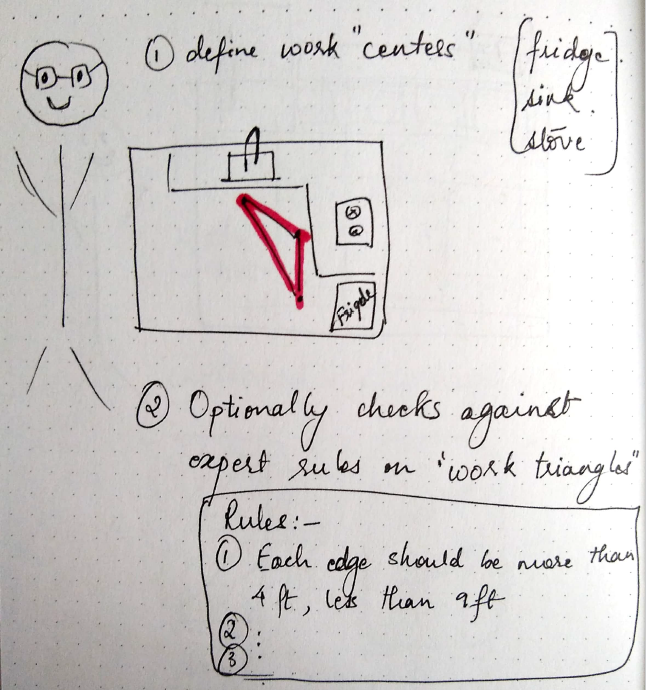 ① define work "centers"
fridge.
sink.
stove
Fridge
② Optionally checks against
expert rules on "work triangles"
Rules:-
① Each edge should be more than
4 ft, less than 9ft
② :
③ :